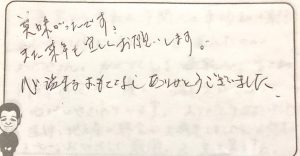 美味かったです。
また来年も宜しくお願いします。
心温まるおもてなしありがとうございました